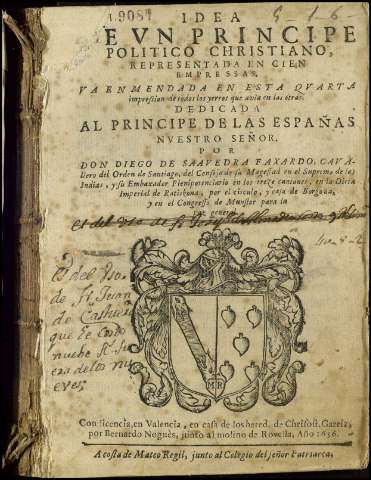 19081
5-1-6-
IDEA
E VN PRINCIPE
POLITICO CHRISTIANO,
REPRESENTADA EN CIEN
EMPRESSAS,
VA ENMENDADA EN ESTA QVARTA
impression de todos los yerros que avia en las otras.
DEDICADA
AL PRINCIPE DE LAS ESPAÑAS
NVESTRO SEÑOR.
POR
DON DIEGO DE SAAVEDRA FAXARDO, CAVA-
llero del Orden de Santiago, del Consejo de su Magestad en el Supremo de las
Indias, y su Embaxador Plenipotenciario en los treze cantones, en la Dieta
Imperial de Ratisbona, por el circulo, y casa de Borgoña,
y en el Congresso de Munster para la
paz general.
es del
de fr. Juan
de
que le costo
nuebe
de los nu
eve
MR
Con licencia, en Valencia, en casa de los hered. de Chrisost. Garriz,
por Bernardo Noguès, junto al molino de Rovella, Año 1656.
A costa de Mateo Regil, junto al Colegio del señor Patriarca.